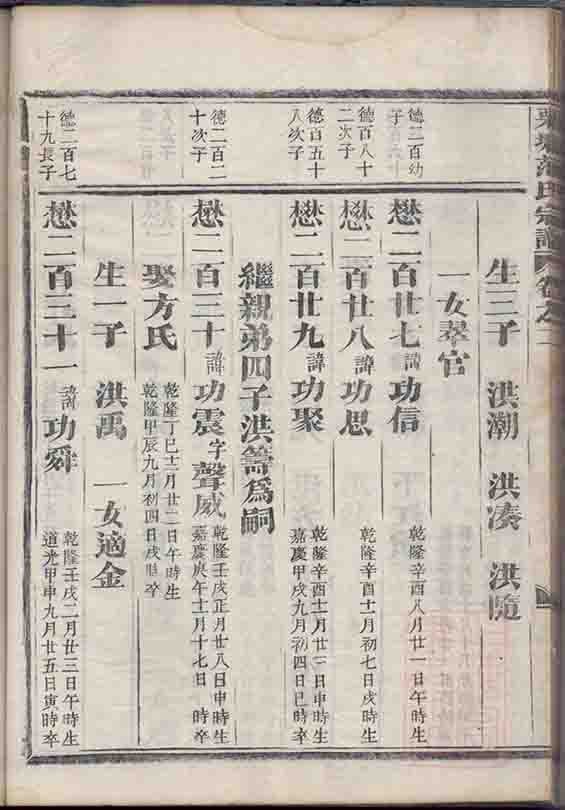 范氏宗譜 卷之二
生三子 洪潮 洪湊 洪隨
一女翠官
德二百幼子
懋二百廿七 諱功信 乾隆辛酉八月廿一日午時生
德百八十二次子
懋二百廿八 諱功思 乾隆辛酉十一月初七日戌時生
德百五十八次子
懋二百廿九 諱功聚 乾隆辛酉十二月廿二日申時生
嘉慶甲戌九月初四日巳時卒
繼親弟四子洪籌爲嗣
德二百二十次子
懋二百三十 諱功震 字聲威 乾隆壬戌正月廿八日申時生
嘉慶庚午十二月十七日 時卒
娶方氏 乾隆丁巳十二月廿二日午時生
乾隆甲辰九月初四日戌時卒
生一子 洪禹 一女適金
德二百七十九長子
懋二百三十一 諱功舜 乾隆壬戌二月廿三日午時生
道光甲申九月廿五日寅時卒